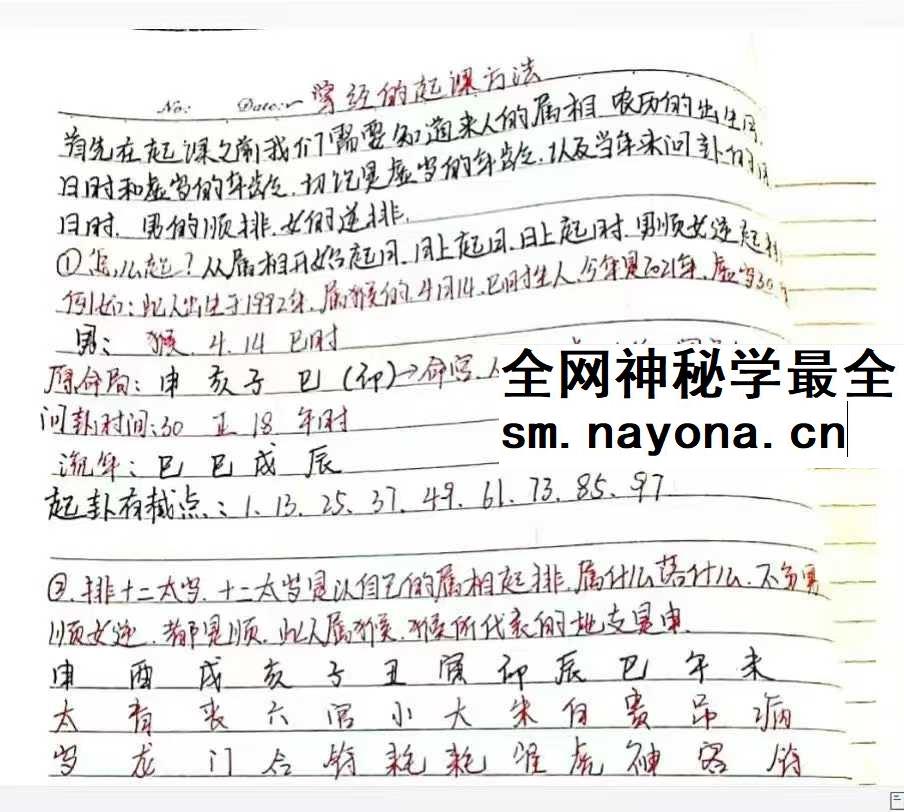 No: Date: 穿经的起课方法
首先在起课之前我们需要知道来人的属相 农历的出生
日时和虚岁的年龄.切记是虚岁的年龄.以及当年来问卦的
日时. 男的顺排.女的逆排.
①怎么起?从属相开始起月.月上起日.日上起时.男顺女逆
例如:此人出生于1992年.属猴的.4月14.巳时生人.今年是2021年.虚岁30
男: 猴. 4. 14 巳时
原命局: 申 亥 子 巳 (卯)→命宫.
全网神秘学最全
问卦时间:30 正 18 午时
sm.nayona.cn
流年: 巳 巳 戌 辰
起卦有截点: 1. 13. 25. 37. 49. 61. 73. 85. 97
②.排十二太岁.十二太岁是以自己的属相起排.属什么落什么.不分男
顺女逆.都是顺.此人属猴.猴所代表的地支是申.
申 酉 戌 亥 子 丑 寅 卯 辰 巳 午 未
太 青 丧 六 官 小 大 朱 白 贵 吊 病
岁 龙 门 合 符 耗 耗 雀 虎 神 客 符